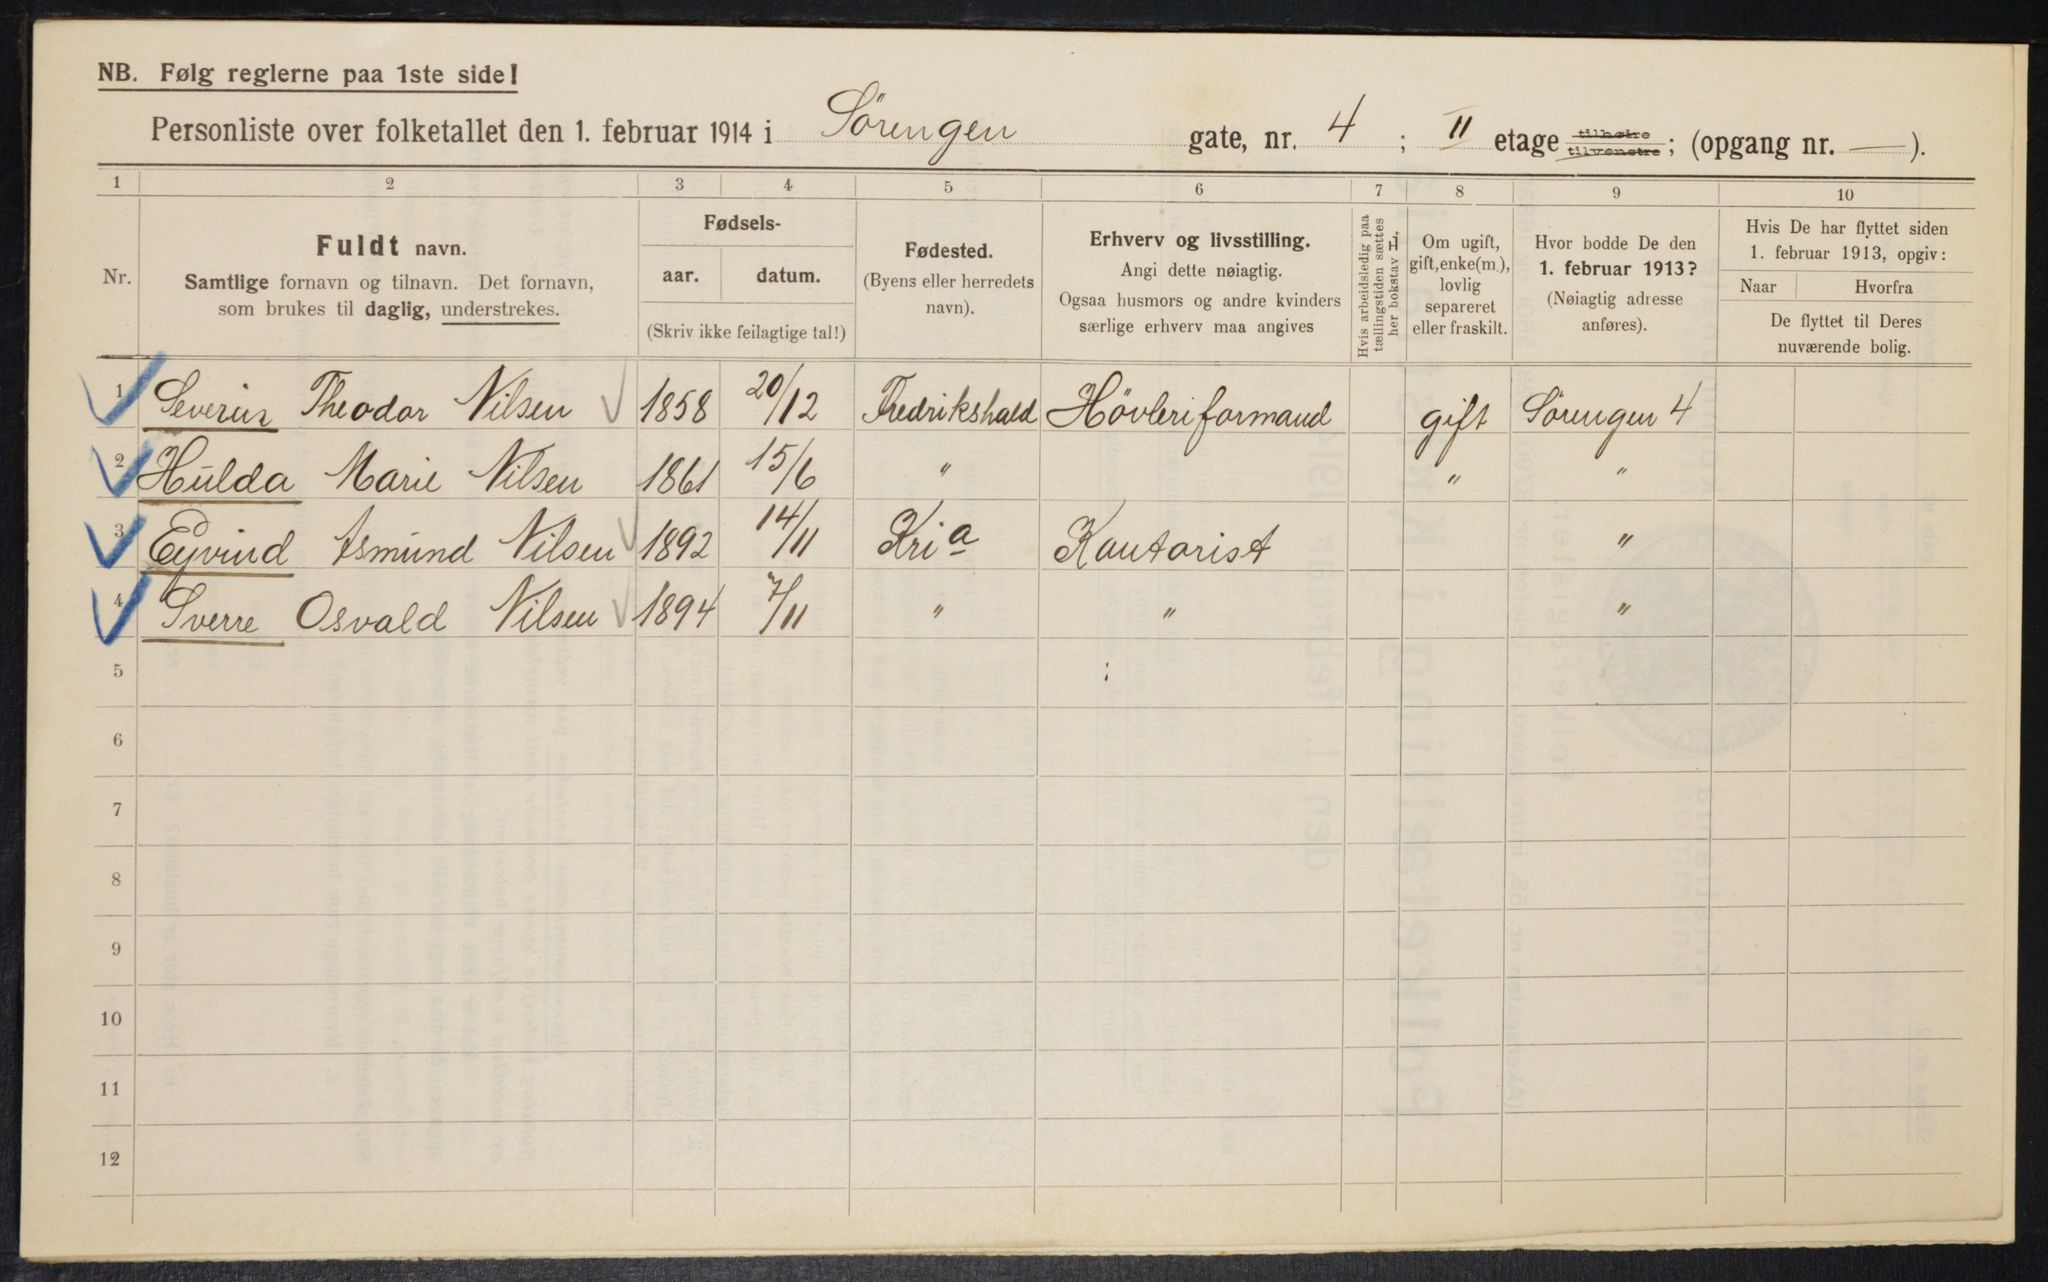 NB. Følg reglerne paa 1ste side!
Personliste over folketallet den 1. februar 1914 i Sörengen gate, nr. 4 ; II etage tilhøire tilvenstre ; (opgang nr. — ).
1 2 3 4 5 6 7 8 9 10
Nr.
Fuldt navn.
Samtlige fornavn og tilnavn. Det fornavn,
som brukes til daglig, understrekes.
Fødsels-
aar. datum.
(Skriv ikke feilagtige tal!)
Fødested.
(Byens eller herredets
navn).
Erhverv og livsstilling.
Angi dette nøiagtig.
Ogsaa husmors og andre kvinders
særlige erhverv maa angives
Hvis arbeidsledig paa
tællingstiden sættes
her bokstav L.
Om ugift,
gift, enke(m.),
lovlig
separeret
eller fraskilt.
Hvor bodde De den
1. februar 1913?
(Nøiagtig adresse
anføres).
Hvis De har flyttet siden
1. februar 1913, opgiv:
Naar Hvorfra
De flyttet til Deres
nuværende bolig.
1 Severin Theodor Nilsen 1858 20/12 Fredrikshald Hövleriformand gift Sörengen 4
2 Hulda Marie Nilsen 1861 15/6 " " "
3 Eyvind Asmund Nilsen 1892 14/11 Kria Kontorist "
4 Sverre Osvald Nilsen 1894 7/11 " " "
5
6
7
8
9
10
11
12